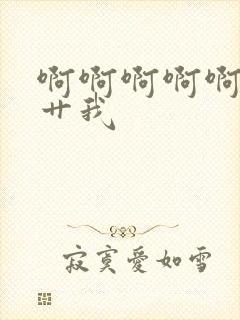 啊啊啊啊啊
艹我
寂寞爱如雪